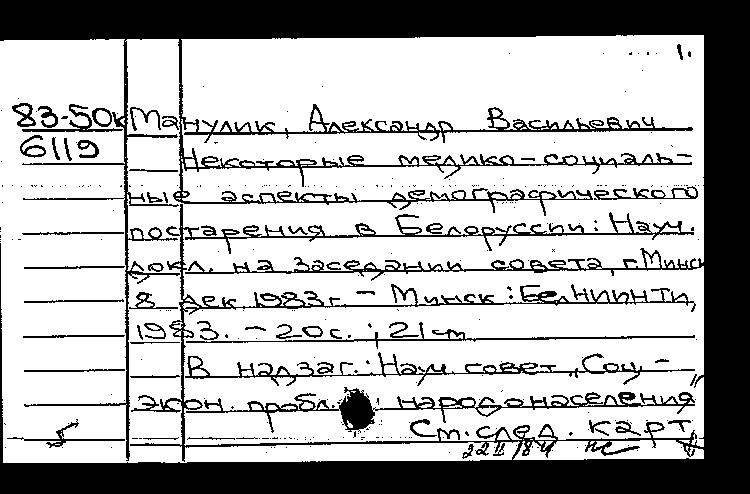 1.
83-50к Манулик, Александр Васильевич
6119 Некоторые медико-социаль-
ные аспекты демографического
постарения в Белоруссии: Науч.
докл. на заседании совета, г. Минск
8 дек 1983г. - Минск: БелНИИНТИ,
1983. - 20с.; 21см
В надзаг.: Науч. совет „Соц.-
экон. пробл. народонаселения"
См. след. карт.
22 II /84